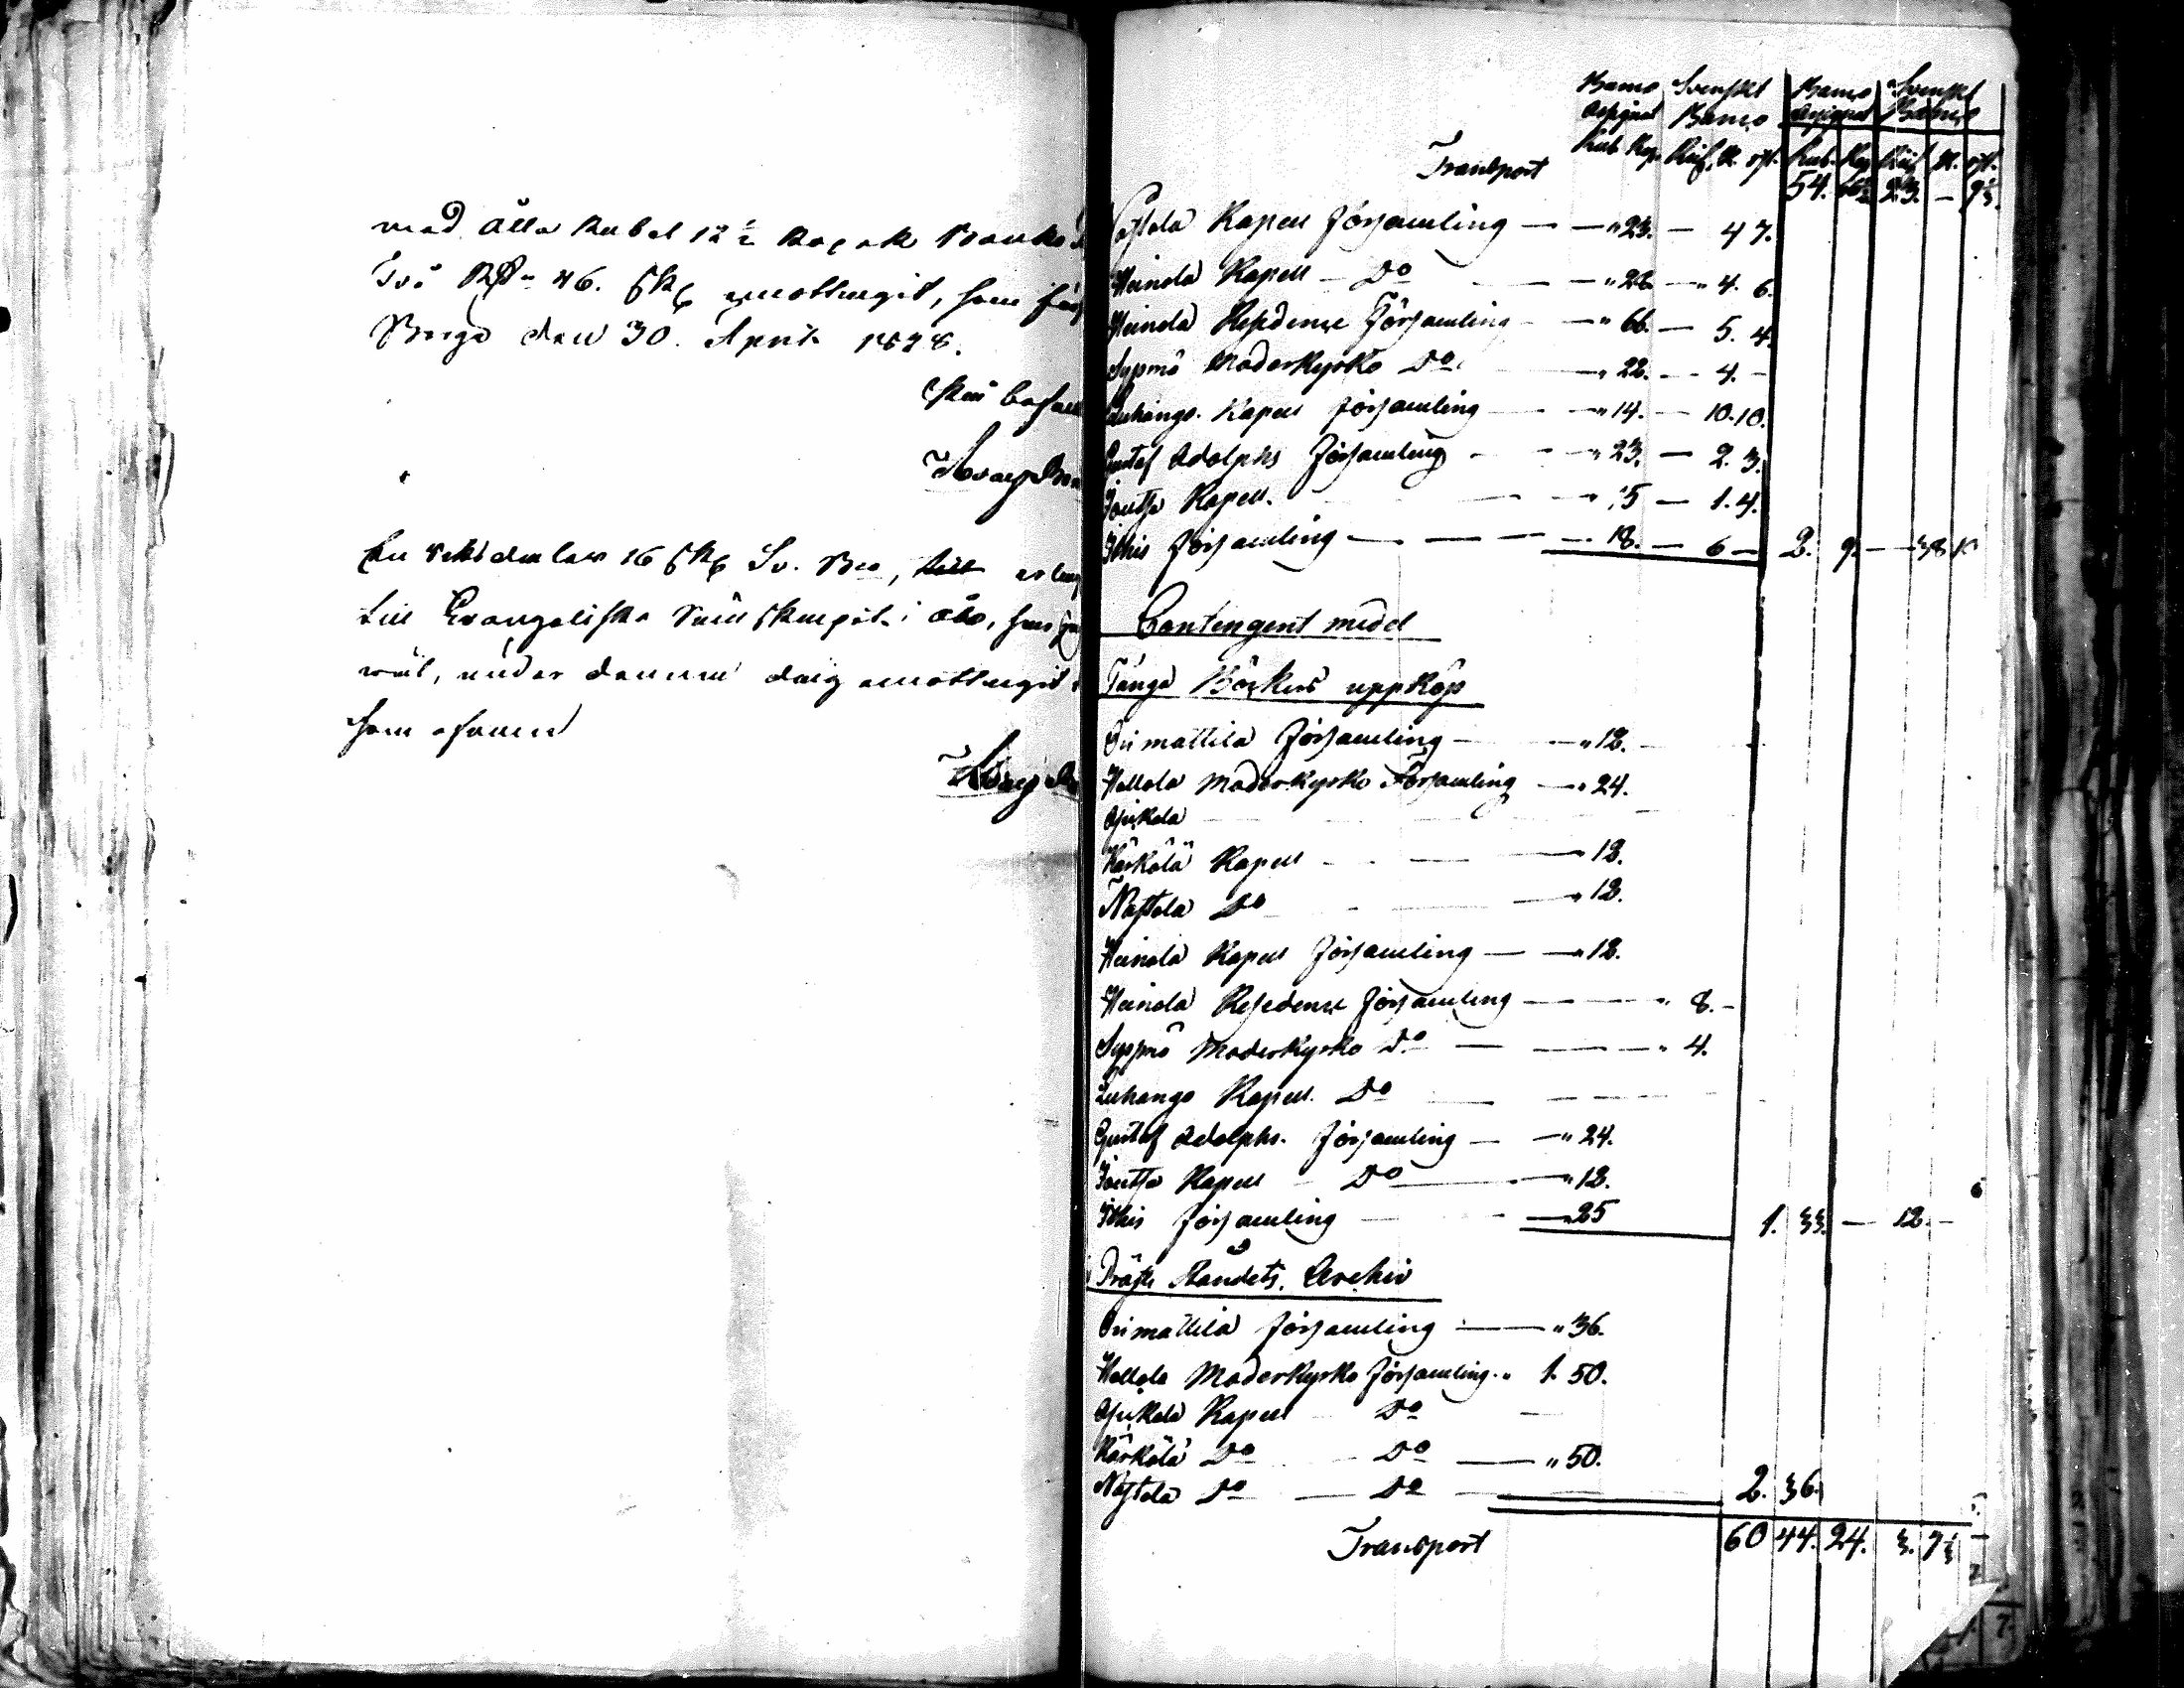 med Åtta Rubel 12½ Kopek Banko
Två RD 46. sk emottagit, som
Borgå den 30. April 1828.
En riksdaler 16 sk Sv. Bco,
till Evangeliska Sällskapet i Åbo,
väl, under denna dag emottagit
som ofvan
Banco Svenskt Banco Svenskt
Assignat Banco Assignat Banco
Transport Rub. Kop. Rd. sk. rst. Rub. Kop. Rd. sk. rst.
54. 23. –
Nastola Kapell Församling — — „ 23. — 4 7.
Heinola Kapell – Do — „ 22 — „ 4. 6.
Heinola Residence Församling — „ 66. — 5. 4.
Sysmä Moderkyrko Do — „ 22. — 4. –
Luhango Kapell Församling — „ 14. — 10. 10.
Gustaf Adolphs Församling — „ 23. — 2. 3.
Joutsa Kapell. — „ 15 — 1. 4.
Ithis Församling — — — 18. — 6 — 2. 9. — 38 10
Contingent medel
Fånga Böckers uppköp
Orimattila Församling — „ 12.
Hollola Moderkyrko Församling — „ 24.
Asikkala
Kärkölä Kapell — 12.
Nastola Do — „ 12.
Heinola Kapell Församling — „ 12.
Heinola Residence Församling — „ 8. –
Sysmä Moderkyrko Do — „ 4.
Luhango Kapell Do —
Gustaf Adolphs. Församling — „ 24.
Joutsa Kapell – Do — „ 12.
Ithis Församling — „ 25 1. 33. — 12. –
Präste Ståndets Archiv
Orimattila Församling — „ 36.
Hollola Moderkyrko Församling „ 1. 50.
Asikkala Kapell Do —
Kärkölä Do Do — „ 50.
Nastola Do — Do — 2. 36.
Transport 60 44. 24. 3. 7⅓